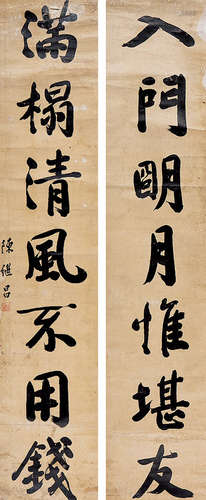 入門明月惟堪友
滿榻清風不用錢
陳继昌